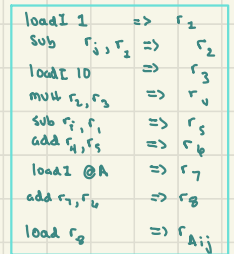 loadI 1 => r1
sub rj, r1 => r2
loadI 10 => r3
mult r2, r3 => r4
sub ri, r1 => r5
add r4, r5 => r6
loadI @A => r7
add r7, r6 => r8
load r8 => rAij